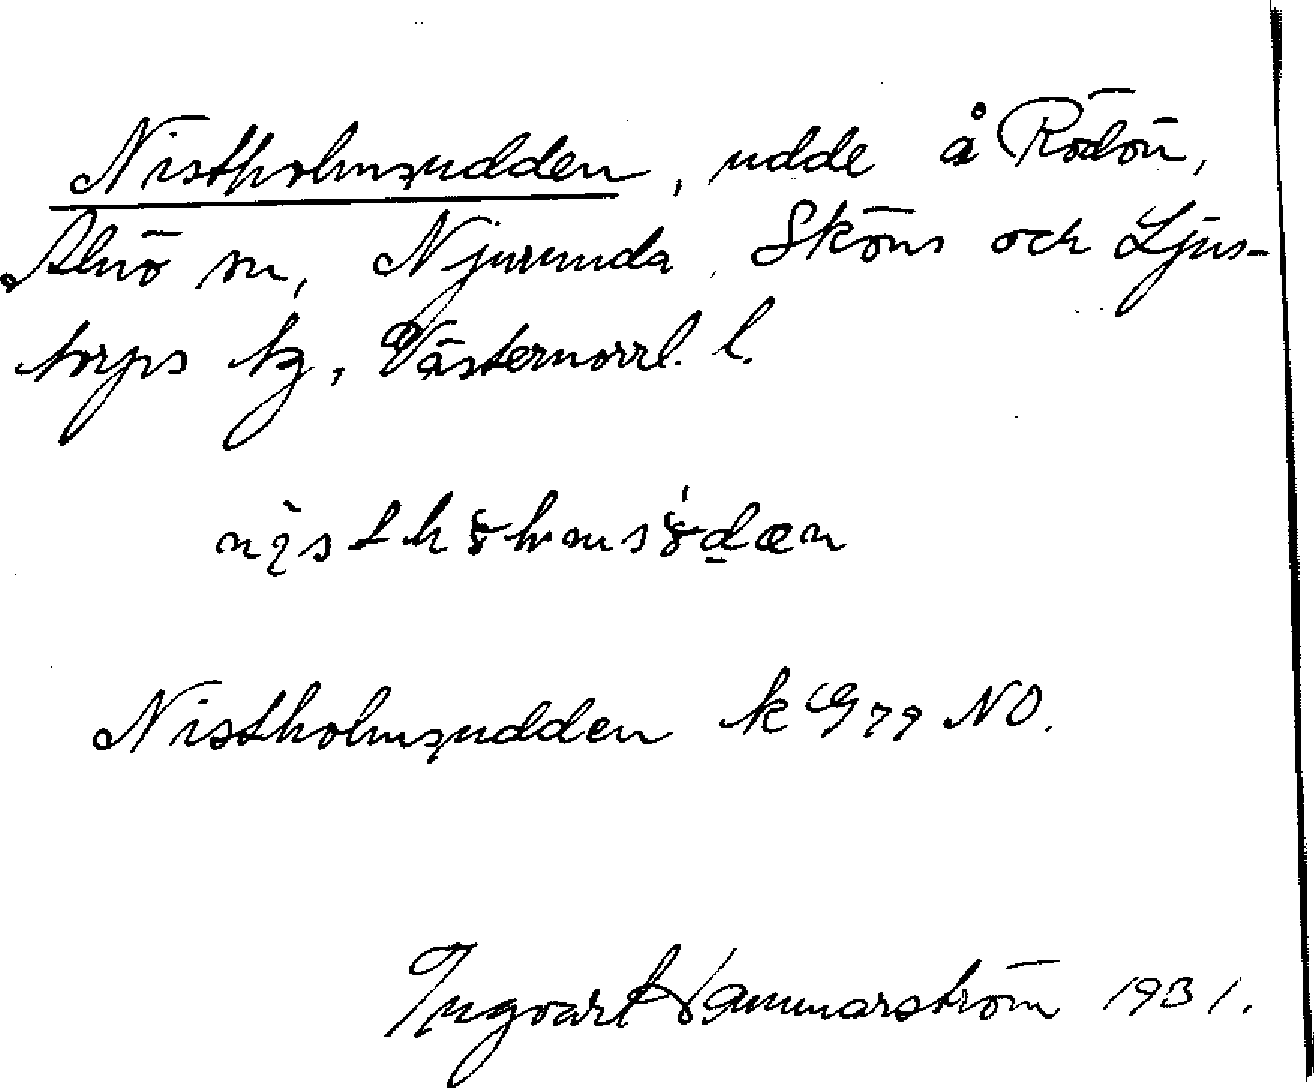 Nistholmsudden, udde å Rödön,
Alnö sn, Njurunda, Sköns och Ljus-
torps tg, Västernorrl. l.
Nistholmsudden k G 79 NO.
Ingvart Hammarström 1931.